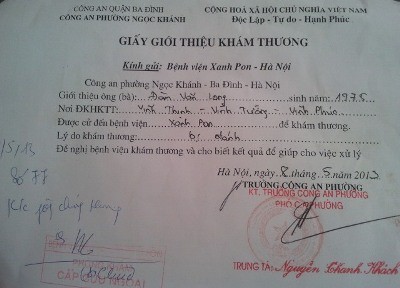 CÔNG AN QUẬN BA ĐÌNH CỘNG HOÀ XÃ HỘI CHỦ NGHĨA VIỆT NAM
CÔNG AN PHƯỜNG NGỌC KHÁNH Độc Lập - Tự do - Hạnh Phúc
GIẤY GIỚI THIỆU KHÁM THƯƠNG
Kính gửi: Bệnh viện Xanh Pon - Hà Nội
Công an phường Ngọc Khánh - Ba Đình - Hà Nội
Giới thiệu ông (bà): Văn Long sinh năm: 1975
Nơi ĐKHKTT: Vĩnh Thịnh - Vĩnh Tường - Vĩnh Phúc
Được cử đến bệnh viện Xanh Pon để khám thương.
Lý do khám thương: Bị đánh
Đề nghị bệnh viện khám thương và cho biết kết quả để giúp cho việc xử lý
Hà Nội, ngày 8 tháng 5 năm 2013
TRƯỞNG CÔNG AN PHƯỜNG
KT. TRƯỞNG CÔNG AN PHƯỜNG
PHÓ CÔNG AN PHƯỜNG
CẤP CỨU NGOẠI
TRUNG TÁ: Nguyễn Thanh Khách